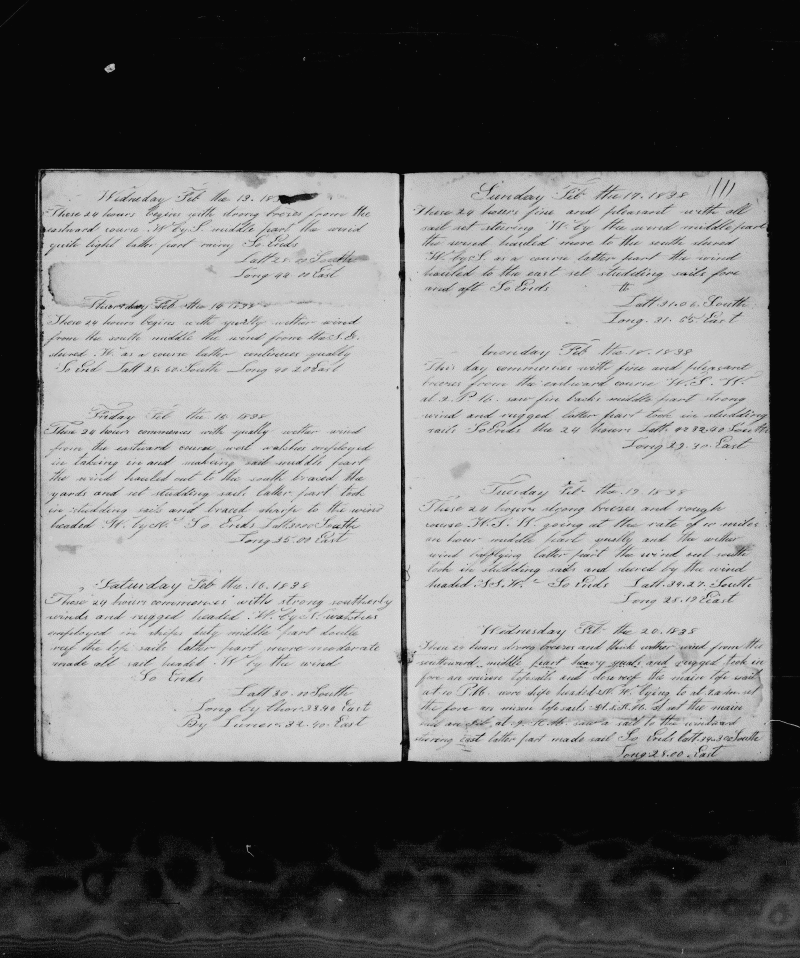 Wednesday Feb the 13. 183
These 24 hours begins with strong breezes from the
eastward course W by S. middle part the wind
quite light latter part rainy So Ends
Latt 28.20 South
Long 44.10 East
Thursday Feb the 14 1838
These 24 hours begins with qually wether wind
from the south middle the wind from the S.E.
stured W. as a course latter continues qually
So End Latt 28.50 South Long 40.20 East
Friday Feb the 15. 1838
These 24 hours commences with qually wether wind
from the eastward course west watches employed
in taking in and making sail middle part
the wind hauled out to the south braced the
yards and set studding sails latter part took
in studding sails and braced sharp to the wind
headed W. by So Ends Latt South
Long 35.00 East
Saturday Feb the 16. 1838
These 24 hours commences with strong southerly
winds and rugged headed W. by S. watches
employed in ships duty middle part double
reef the top sails latter part more moderate
made all sail headed W by the wind
So Ends
Latt 30.10 South
Long by Chor. 33.40 East
By Lunar. 32.40. East
111
Sunday Feb the 17. 1838
These 24 hours fine and pleasant with all
sail set steering W. by the wind middle part
the wind hauled more to the south stured
W. by S. as a course latter part the wind
hauled to the east set studding sails fore
and aft So Ends
Latt. 31.06. South
Long. 31.55. East
Monday Feb the 18. 1838
This day commences with fine and pleasant
breezes from the eastward course W.S.W.
at 2. P.M. saw fin backs middle part strong
wind and rugged latter part took in studding
sails So Ends the 24 hours Latt. 32.40 South
Long 29.30 East
Tuesday Feb the 19. 1838
These 24 hours strong breezes and rough
course W.S.W. going at the rate of 10 miles
an hour middle part qually and the wether
wind latter part the wind out south
took in studding sails and stured by the wind
headed S.S.W. So Ends Latt. 34.27. South
Long 28.17 East
Wednesday Feb the 20. 1838
These 24 hours strong breezes and thick wether wind from the
southward middle part heavy quals and rugged took in
fore an mizen topsails and close reef the main top sail
at 10 P.M. wore ship headed W. lying to at 2 a.m. set
the fore an mizen top sails at set the main
sail an at A.M. saw a sail to the windward
steering east latter part made sail So Ends Latt. 34.30 South
Long 28.00. East